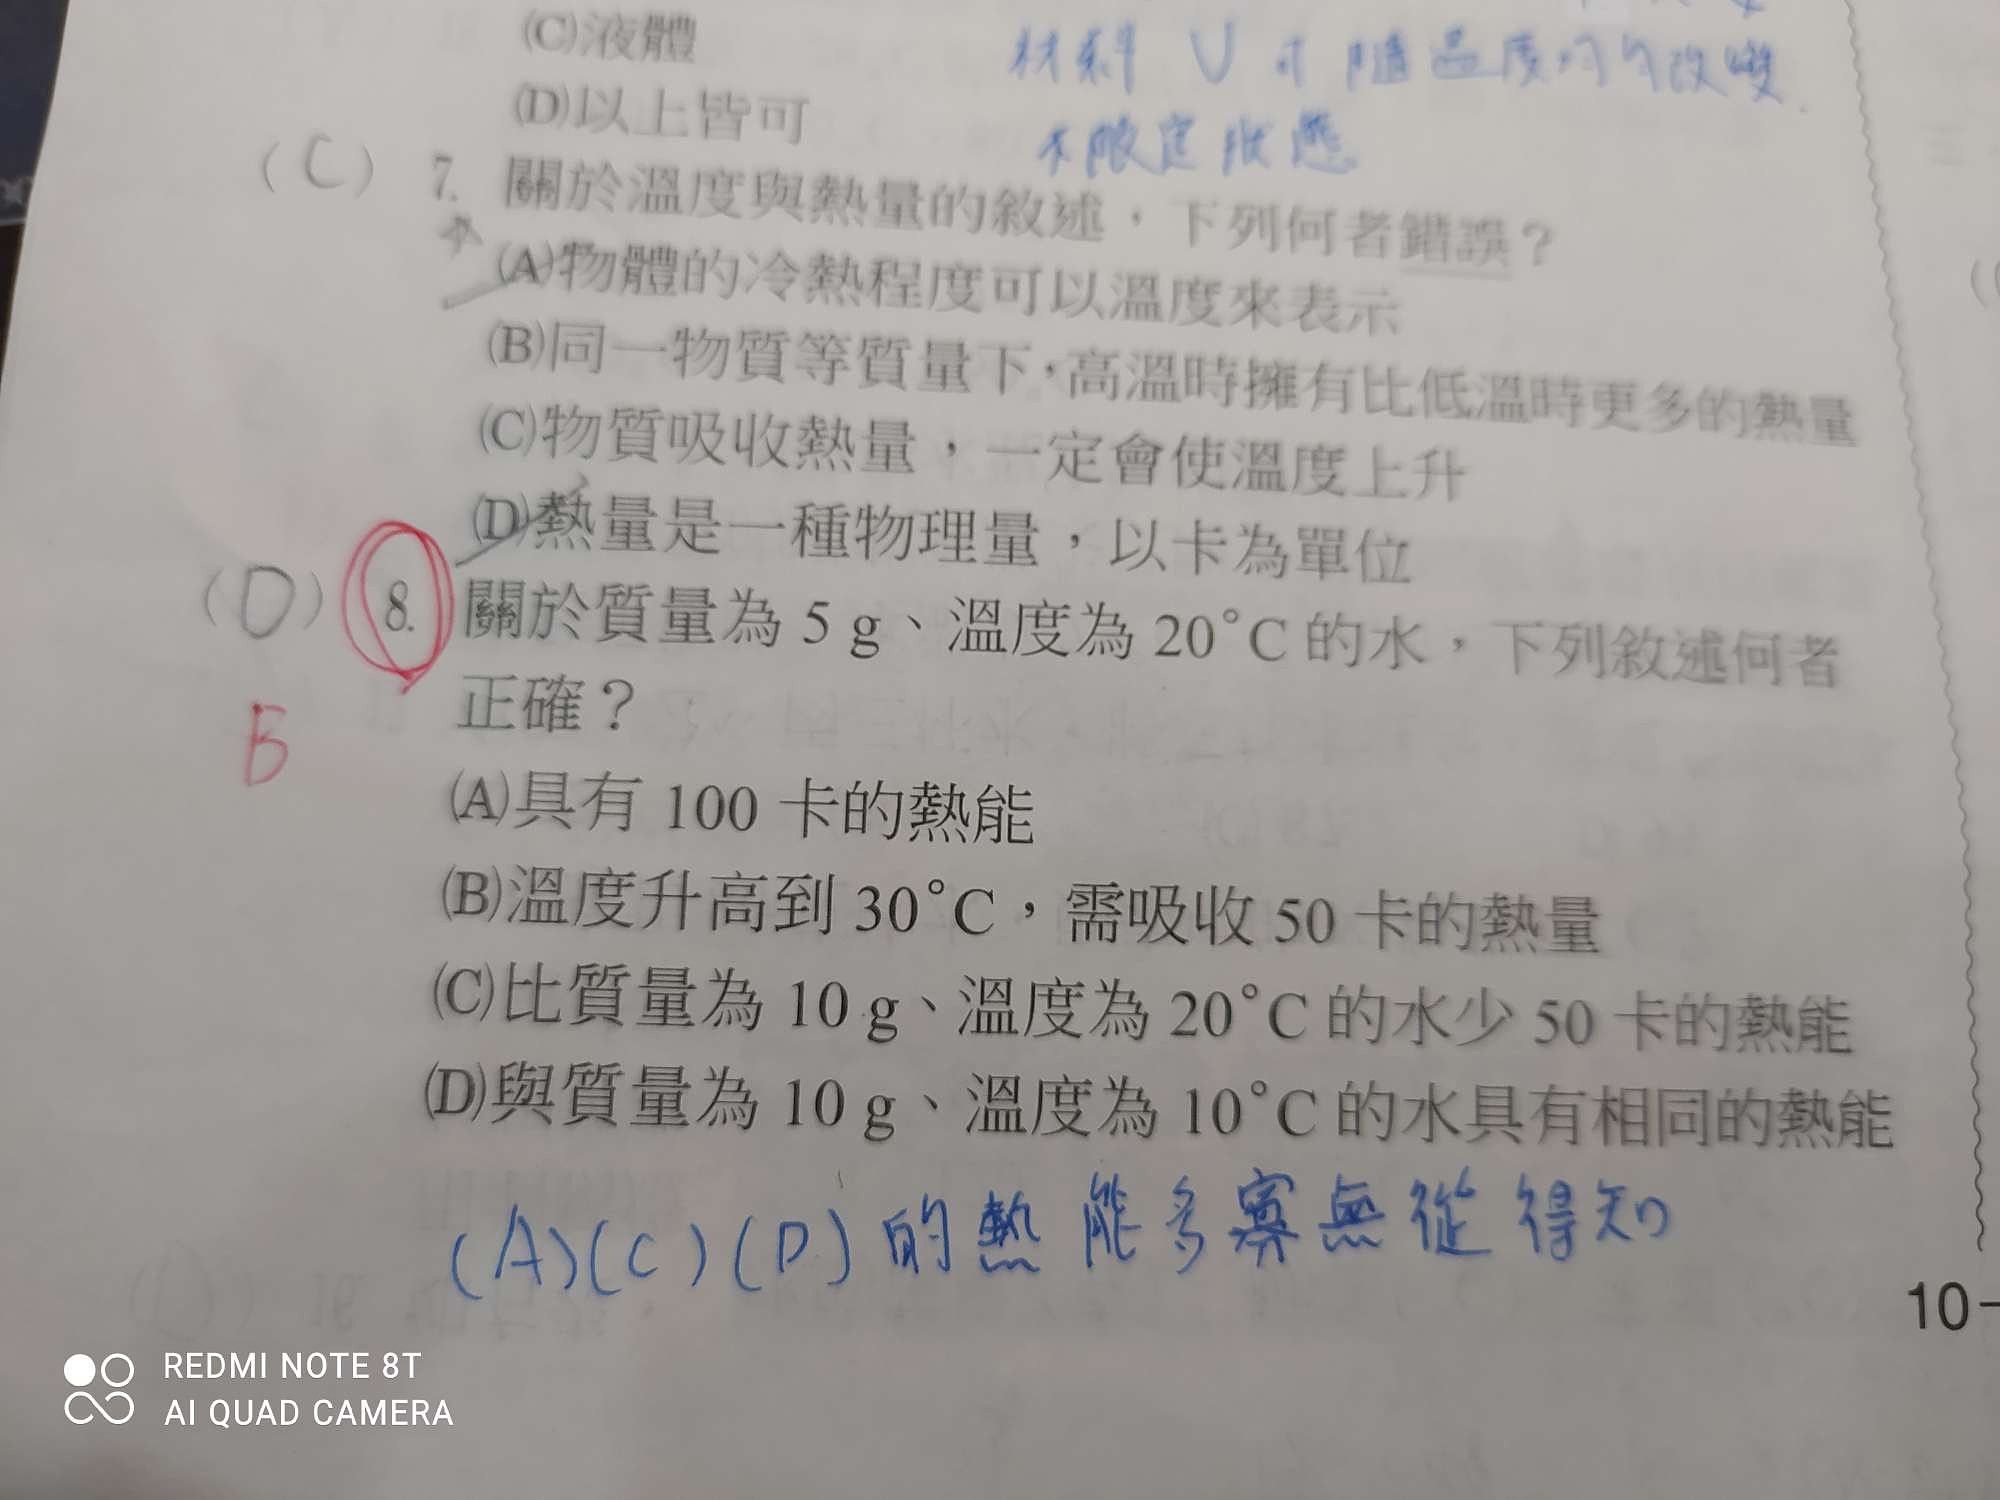 (C)液體
(D)以上皆可
材料 V 可 隨溫度均勻改變
不限定狀態
(C) 7. 關於溫度與熱量的敘述，下列何者錯誤？
(A)物體的冷熱程度可以溫度來表示
(B)同一物質等質量下，高溫時擁有比低溫時更多的熱量
(C)物質吸收熱量，一定會使溫度上升
(D)熱量是一種物理量，以卡為單位
(D) 8. 關於質量為 5 g、溫度為 20°C 的水，下列敘述何者
正確？
B
(A)具有 100 卡的熱能
(B)溫度升高到 30°C，需吸收 50 卡的熱量
(C)比質量為 10 g、溫度為 20°C 的水少 50 卡的熱能
(D)與質量為 10 g、溫度為 10°C 的水具有相同的熱能
(A)(C)(D)的熱能多寡無從得知
10-
REDMI NOTE 8T
AI QUAD CAMERA